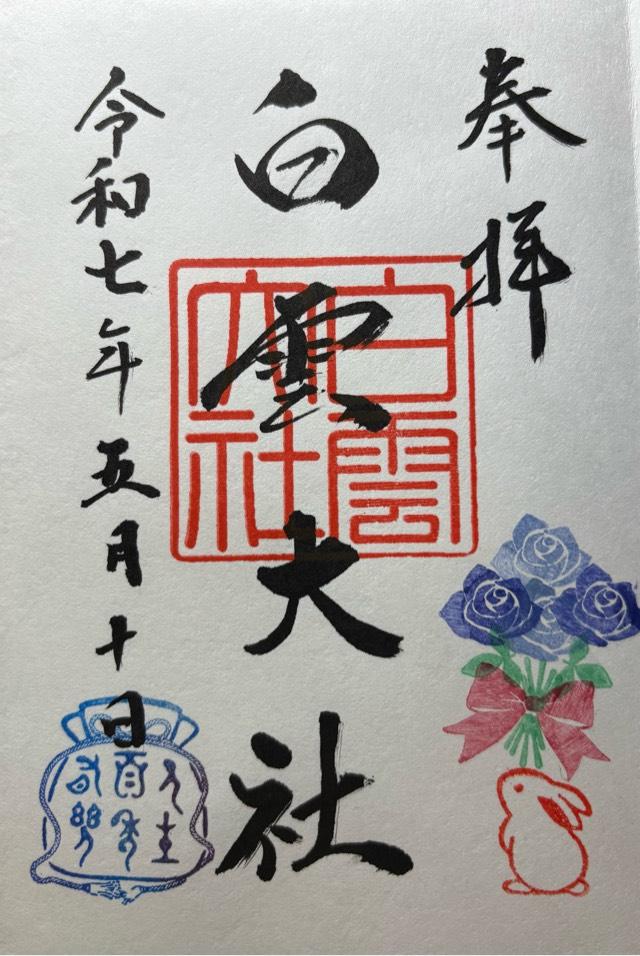 奉拝
白雲大社
白雲大社
令和七年五月十日